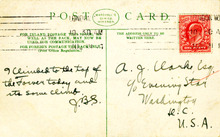 POST CARD
FOR INLAND POSTAGE ONLY THIS SPACE AS
WELL AS THE BACK, MAY NOW BE
USED FOR COMMUNICATION.
FOR FOREIGN POSTAGE THE BACK ONLY.
(Post Office Regulation).
THE ADDRESS ONLY TO
BE WRITTEN HERE.
I Climbed to the top of
the Tower today and
its some Climb.
J.B.S.
A. J. Clarke Esq
c/o Evening Star
Washington
D.C.
U.S.A.